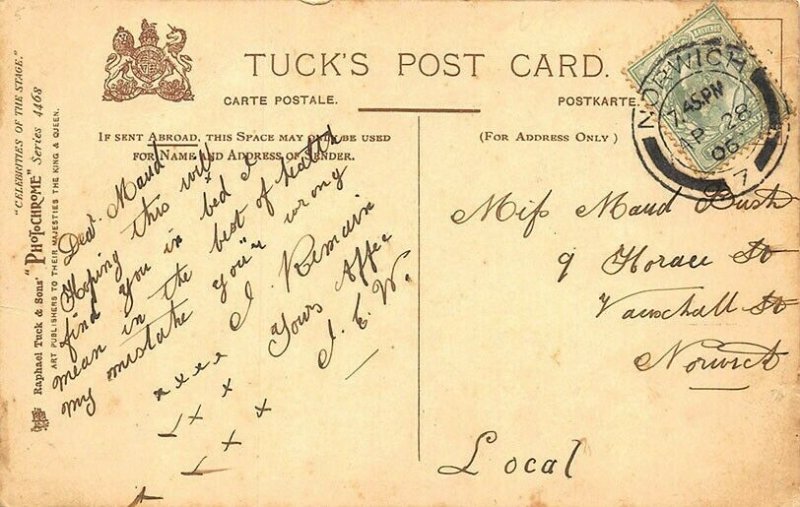 "CELEBRITIES OF THE STAGE."
Raphael Tuck & Sons' "PHOTOCHROME" Series 4468
ART PUBLISHERS TO THEIR MAJESTIES THE KING & QUEEN.
TUCK'S POST CARD.
CARTE POSTALE.
POSTKARTE
IF SENT ABROAD, THIS SPACE MAY ONLY BE USED
FOR NAME AND ADDRESS OF SENDER.
(FOR ADDRESS ONLY)
NORWICH
7.45PM
AP 28
06
7
Dear Maud
Hoping this will
find you in bed I
mean in the best of health
my mistake you're wrong
I Remain
Yours Affec
J. E. W.
x x x x
x x
x x
x
Miss Maud Bush
9 Horace St
Vauxhall St
Norwich
Local